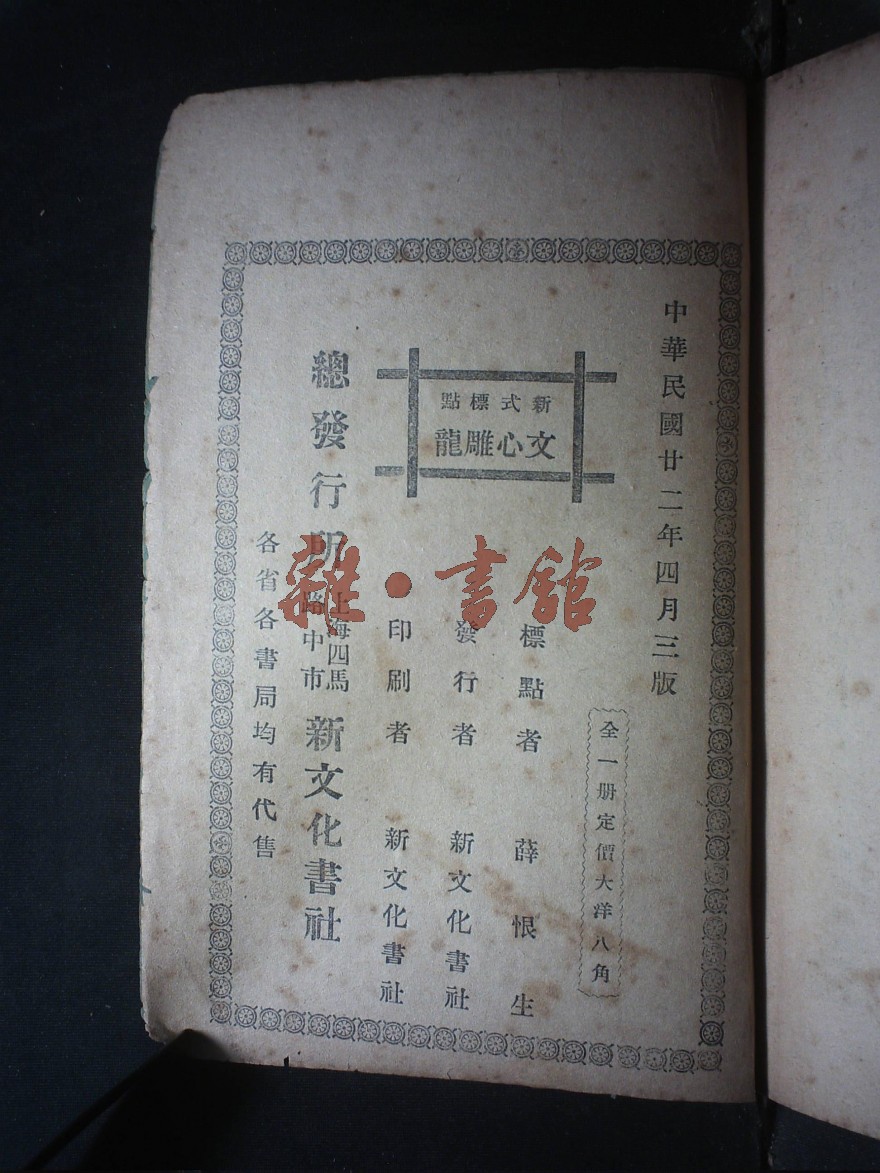 中華民國廿二年四月三版
全一册定價大洋八角
新式標點
文心雕龍
標點者 薛恨生
發行者 新文化書社
印刷者 新文化書社
總發行所 上海四馬路中市 新文化書社
各省各書局均有代售
雜·書館